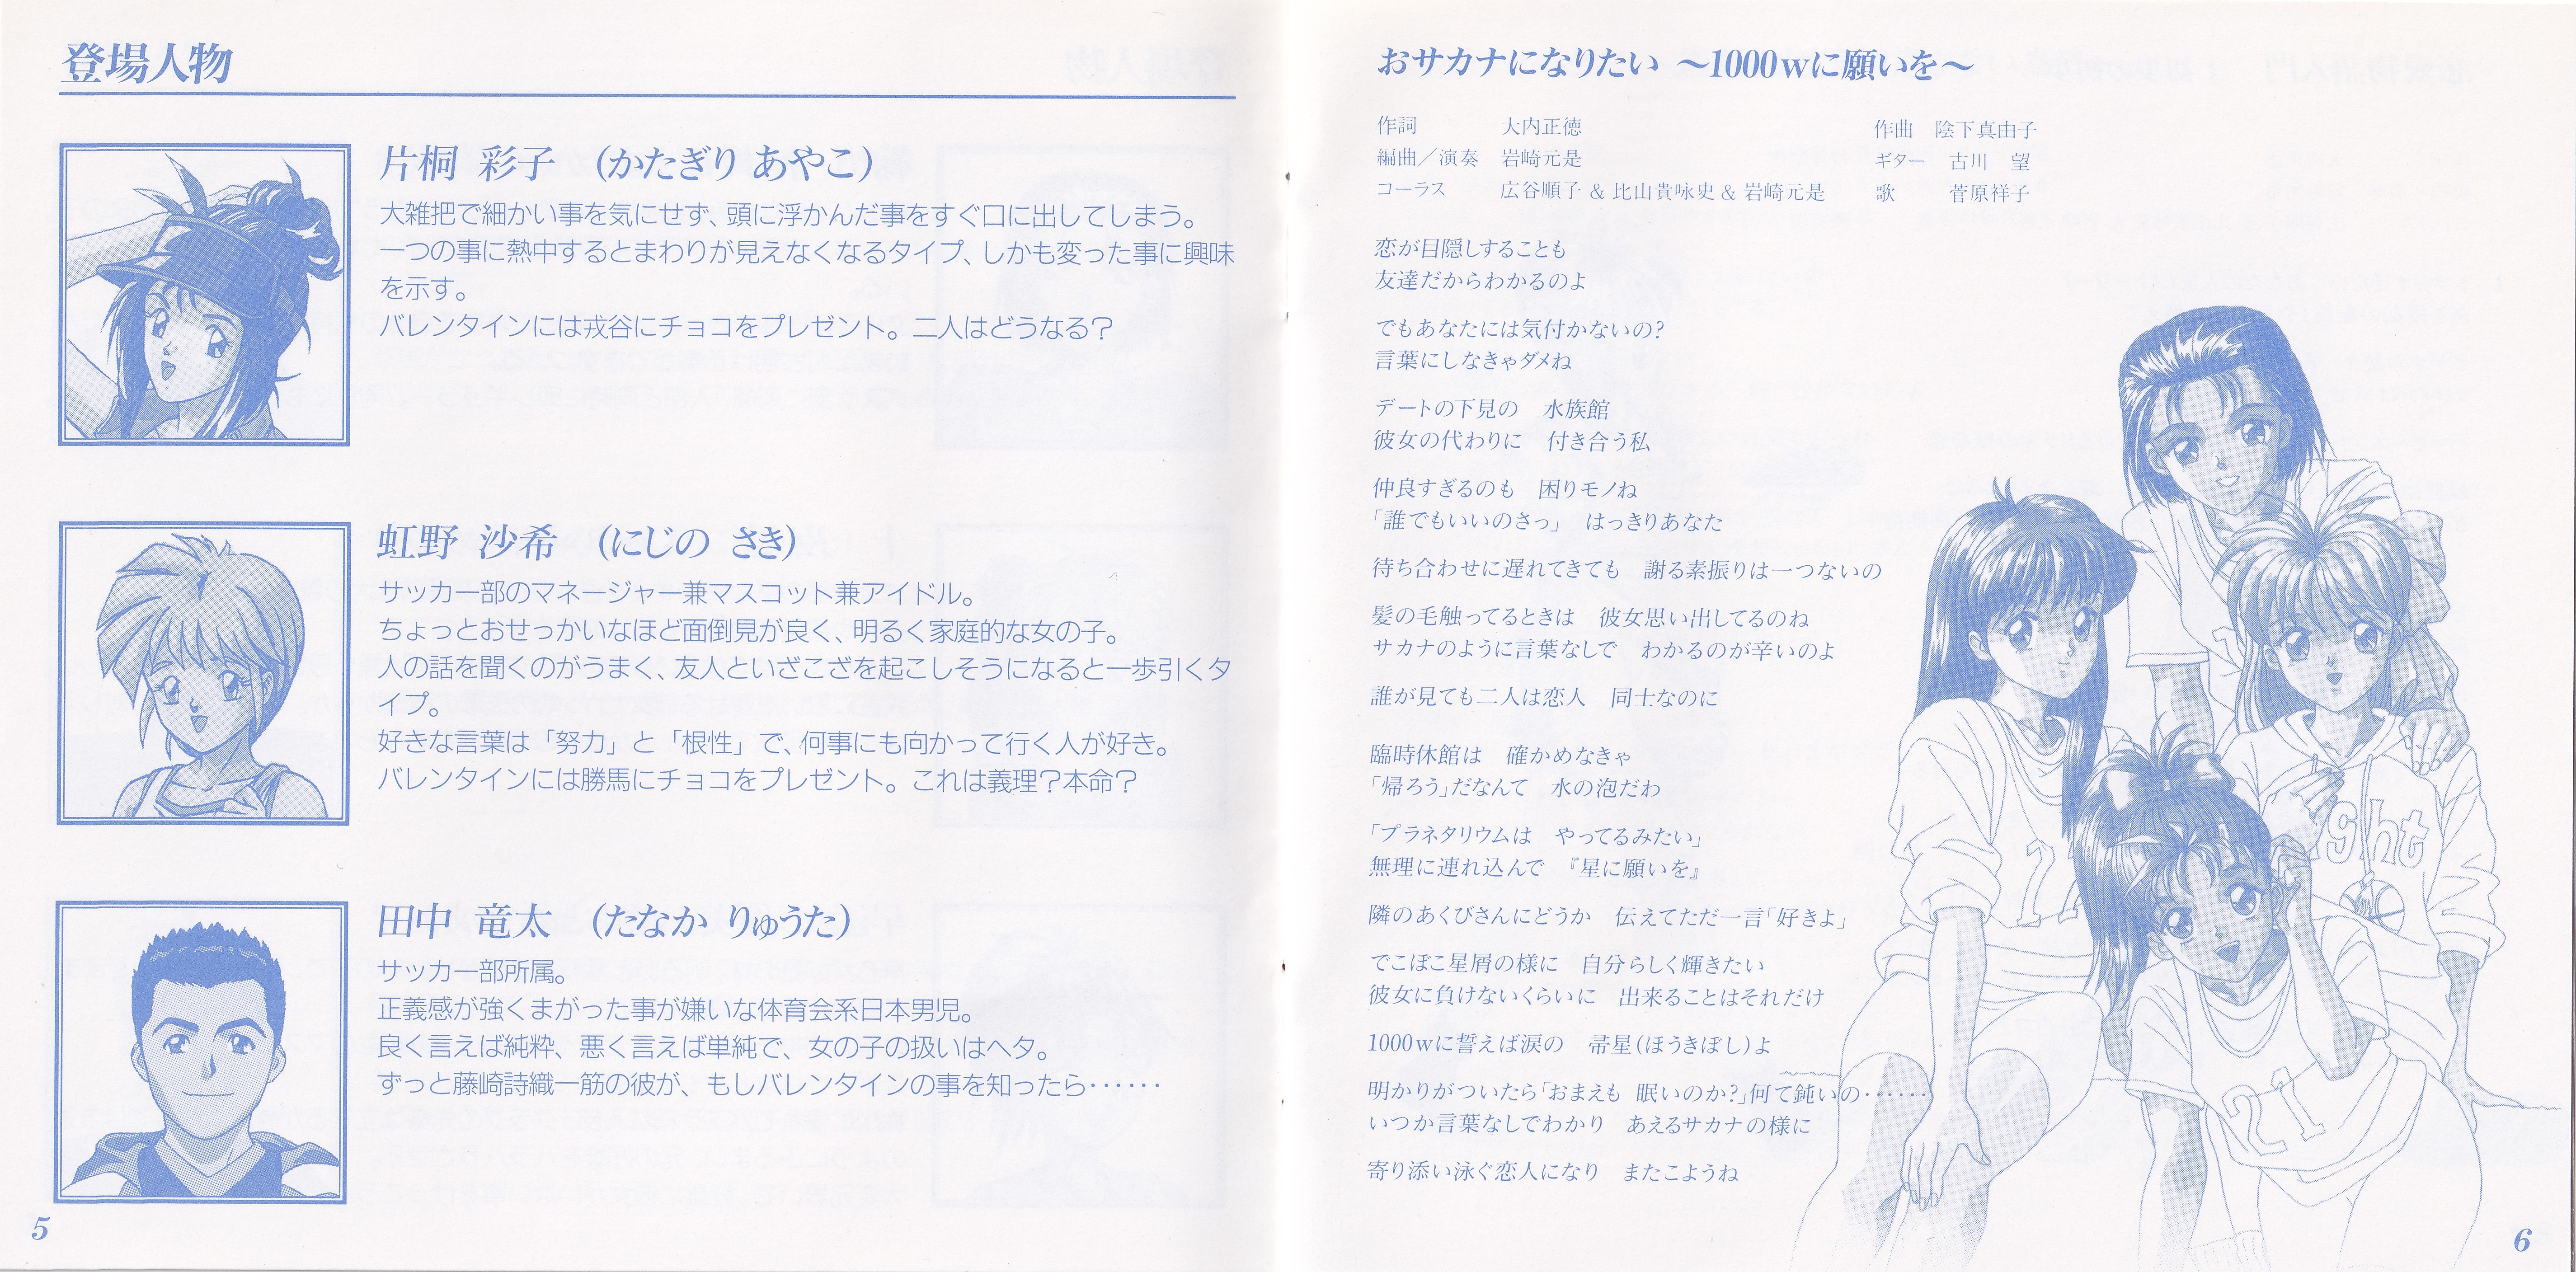 登場人物
片桐 彩子 (かたぎり あやこ)
大雑把で細かい事を気にせず、頭に浮かんだ事をすぐ口に出してしまう。
一つの事に熱中するとまわりが見えなくなるタイプ、しかも変った事に興味
を示す。
バレンタインには戎谷にチョコをプレゼント。二人はどうなる?
虹野 沙希 (にじの さき)
サッカー部のマネージャー兼マスコット兼アイドル。
ちょっとおせっかいなほど面倒見が良く、明るく家庭的な女の子。
人の話を聞くのがうまく、友人といざこざを起こしそうになると一歩引くタ
イプ。
好きな言葉は「努力」と「根性」で、何事にも向かって行く人が好き。
バレンタインには勝馬にチョコをプレゼント。これは義理?本命?
田中 竜太 (たなか りゅうた)
サッカー部所属。
正義感が強くまがった事が嫌いな体育会系日本男児。
良く言えば純粋、悪く言えば単純で、女の子の扱いはヘタ。
ずっと藤崎詩織一筋の彼が、もしバレンタインの事を知ったら‥‥‥
5
おサカナになりたい ～1000wに願いを～
作詞 大内正徳 作曲 陰下真由子
編曲／演奏 岩崎元是 ギター 古川 望
コーラス 広谷順子 & 比山貴咏史 & 岩崎元是 歌 菅原祥子
恋が目隠しすることも
友達だからわかるのよ
でもあなたには気付かないの?
言葉にしなきゃダメね
デートの下見の 水族館
彼女の代わりに 付き合う私
仲良すぎるのも 困りモノね
「誰でもいいのさっ」 はっきりあなた
待ち合わせに遅れてきても 謝る素振りは一つないの
髪の毛触ってるときは 彼女思い出してるのね
サカナのように言葉なしで わかるのが辛いのよ
誰が見ても二人は恋人 同士なのに
臨時休館は 確かめなきゃ
「帰ろう」だなんて 水の泡だわ
「プラネタリウムは やってるみたい」
無理に連れ込んで 『星に願いを』
隣のあくびさんにどうか 伝えてただ一言「好きよ」
でこぼこ星屑の様に 自分らしく輝きたい
彼女に負けないくらいに 出来ることはそれだけ
1000wに誓えば涙の 帚星(ほうきぼし)よ
明かりがついたら「おまえも 眠いのか?」何て鈍いの‥‥‥
いつか言葉なしでわかり あえるサカナの様に
寄り添い泳ぐ恋人になり またこようね
ght
21
6